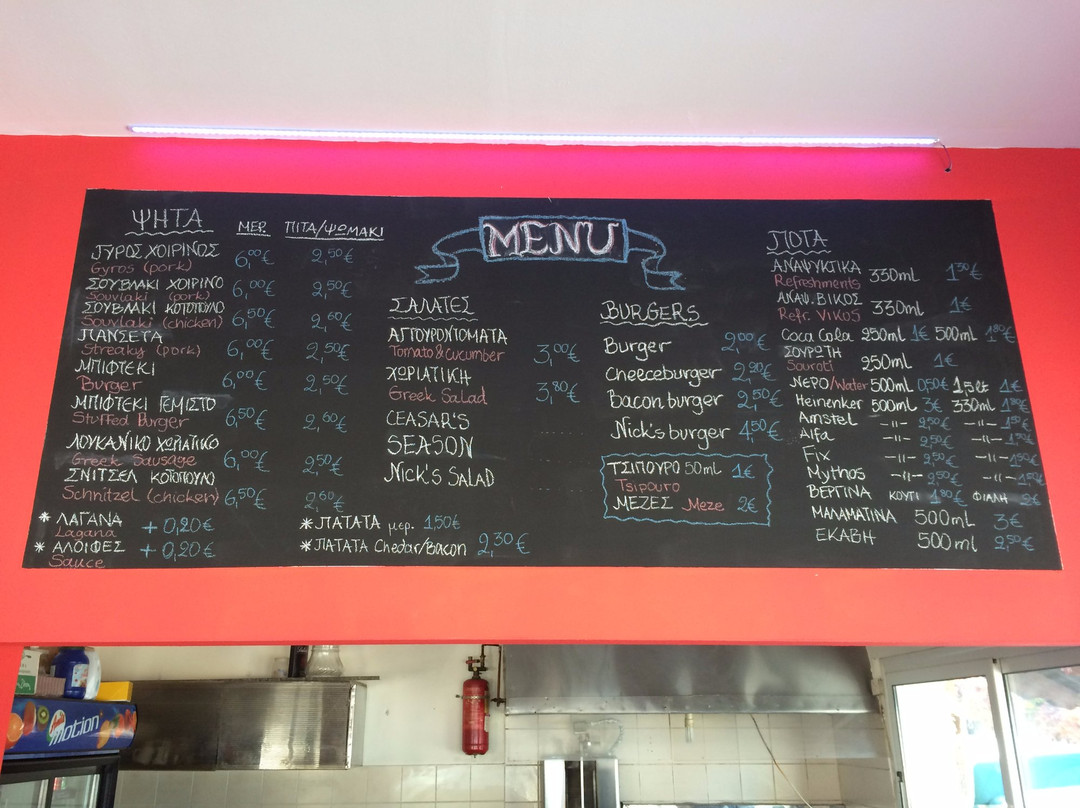 MENU
ΨΗΤΑ ΜΕΡ. ΠΙΤΑ/ΨΩΜΑΚΙ
ΓΥΡΟΣ ΧΟΙΡΙΝΟΣ 6,00€ 2,50€
Gyros (pork)
ΣΟΥΒΛΑΚΙ ΧΟΙΡΙΝΟ 6,00€ 2,50€
Souvlaki (pork)
ΣΟΥΒΛΑΚΙ ΚΟΤΟΠΟΥΛΟ 6,50€ 2,60€
Souvlaki (chicken)
ΠΑΝΣΕΤΑ 6,00€ 2,50€
Streaky (pork)
ΜΠΙΦΤΕΚΙ 6,00€ 2,50€
Burger
ΜΠΙΦΤΕΚΙ ΓΕΜΙΣΤΟ 6,50€ 2,60€
Stuffed Burger
ΛΟΥΚΑΝΙΚΟ ΧΩΡΙΑΤΙΚΟ 6,00€ 2,50€
Greek Sausage
ΣΝΙΤΣΕΛ ΚΟΤΟΠΟΥΛΟ 6,50€ 2,60€
Schnitzel (chicken)
* ΛΑΓΑΝΑ + 0,20€
Lagana
* ΑΛΟΙΦΕΣ + 0,20€
Sauce
ΣΑΛΑΤΕΣ
ΑΓΓΟΥΡΟΝΤΟΜΑΤΑ 3,00€
Tomato & Cucumber
ΧΩΡΙΑΤΙΚΗ 3,80€
Greek Salad
CEASAR'S
SEASON
NICK'S SALAD
* ΠΑΤΑΤΑ μερ. 1,50€
* ΠΑΤΑΤΑ Chedar/Bacon 2,30€
BURGERS
Burger 2,00€
Cheeceburger 2,20€
Bacon burger 2,50€
Nick's burger 4,50€
ΤΣΙΠΟΥΡΟ 50ml 1€
Tsipouro
ΜΕΖΕΣ Meze 2€
ΠΟΤΑ
ΑΝΑΨΥΚΤΙΚΑ 330ml 1,30€
Refreshments
ΑΝΑΨ. ΒΙΚΟΣ 330ml 1€
Refr. VIKOS
Coca Cola 250ml 1€ 500ml 1,80€
ΣΟΥΡΩΤΗ 250ml 1€
Sourati
ΝΕΡΟ/Water 500ml 0,50€ 1,5lt 1€
Heinenker 500ml 3€ 330ml 1,80€
Amstel -〃- 2,50€ -〃- 1,50€
Alfa -〃- 2,50€ -〃-
Fix -〃- 2,50€ -〃- 1,50€
Mythos -〃- 2,50€ -〃- 1,50€
ΒΕΡΓΙΝΑ ΚΟΥΤΙ 1,80€ ΦΙΑΛΗ 2€
ΜΑΛΑΜΑΤΙΝΑ 500ml 3€
ΕΚΑΒΗ 500ml 2,50€
motion